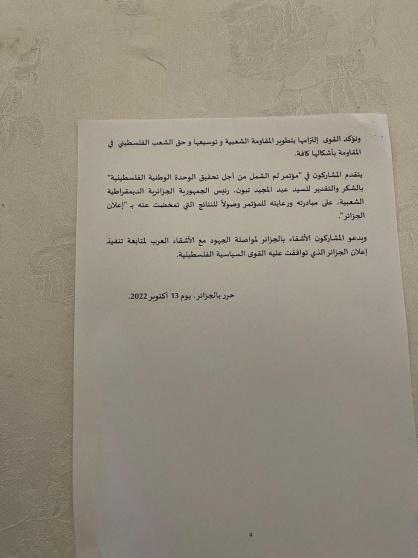 وتؤكد القوى إلتزامها بتطوير المقاومة الشعبية و توسيعها و حق الشعب الفلسطيني في
المقاومة بأشكالها كافة.
يتقدم المشاركون في "مؤتمر لم الشمل من أجل تحقيق الوحدة الوطنية الفلسطينية"
بالشكر والتقدير للسيد عبد المجيد تبون، رئيس الجمهورية الجزائرية الديمقراطية
الشعبية، على مبادرته ورعايته للمؤتمر وصولاً للنتائج التي تمخضت عنه بـ "إعلان
الجزائر".
ويدعو المشاركون الأشقاء بالجزائر لمواصلة الجهود مع الأشقاء العرب لمتابعة تنفيذ
إعلان الجزائر الذي توافقت عليه القوى السياسية الفلسطينية.
حرر بالجزائر، يوم 13 أكتوبر 2022.
4